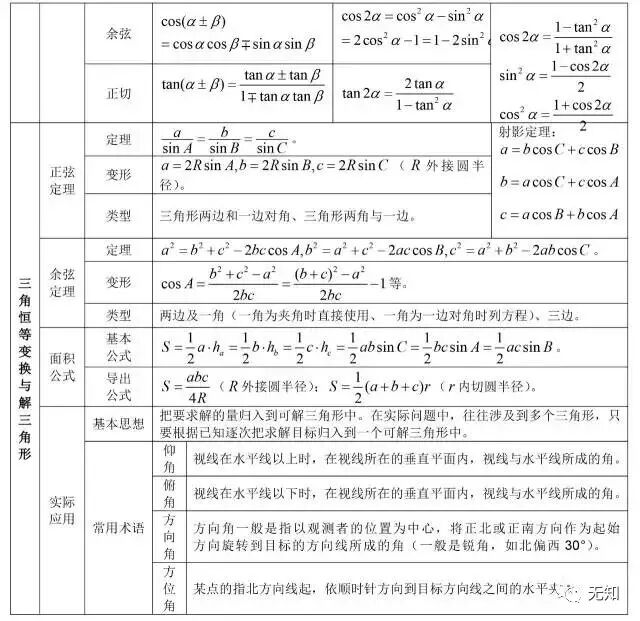 余弦
cos(α±β)
=cosαcosβ∓sinαsinβ
cos2α=cos²α−sin²α
=2cos²α−1=1−2sin²
cos2α=(1−tan²α)/(1+tan²α)
sin²α=(1−cos2α)/2
cos²α=(1+cos2α)/2
正切
tan(α±β)=(tanα±tanβ)/(1∓tanαtanβ)
tan2α=2tanα/(1−tan²α)
三角恒等变换与解三角形
正弦
定理
定理
a/sinA=b/sinB=c/sinC。
变形
a=2RsinA,b=2RsinB,c=2RsinC（R外接圆半
径）。
类型
三角形两边和一边对角、三角形两角与一边。
射影定理：
a=bcosC+ccosB
b=acosC+ccosA
c=acosB+bcosA
余弦
定理
定理
a²=b²+c²−2bccosA,b²=a²+c²−2accosB,c²=a²+b²−2abcosC。
变形
cosA=(b²+c²−a²)/2bc=((b+c)²−a²)/2bc−1等。
类型
两边及一角（一角为夹角时直接使用、一角为一边对角时列方程）、三边。
面积
公式
基本
公式
S=1/2a·hₐ=1/2b·h_b=1/2c·h_c=1/2absinC=1/2bcsinA=1/2acsinB。
导出
公式
S=abc/4R（R外接圆半径）；S=1/2(a+b+c)r（r内切圆半径）。
实际
应用
基本思想
把要求解的量归入到可解三角形中。在实际问题中，往往涉及到多个三角形，只
要根据已知逐次把求解目标归入到一个可解三角形中。
常用术语
仰
角
视线在水平线以上时，在视线所在的垂直平面内，视线与水平线所成的角。
俯
角
视线在水平线以下时，在视线所在的垂直平面内，视线与水平线所成的角。
方
向
角
方向角一般是指以观测者的位置为中心，将正北或正南方向作为起始
方向旋转到目标的方向线所成的角（一般是锐角，如北偏西30°）。
方
位
角
某点的指北方向线起，依顺时针方向到目标方向线之间的水平夹
无知